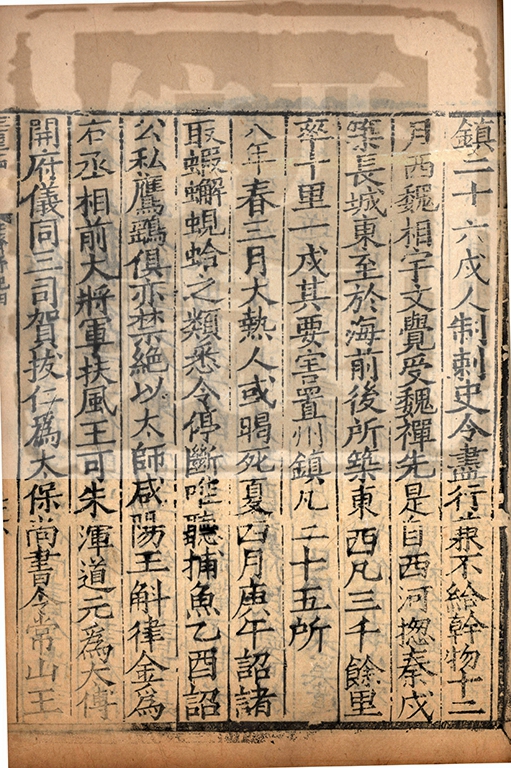 鎮二十六戍人制刺史令盡行兼不給幹物十二
月西魏相宇文覺受魏禪先是自西河揔秦戍
築長城東至於海前後所築東西凡三千餘里
率十里一戍其要害置州鎮凡二十五所
八年春三月大熱人或暍死夏四月庚午詔諸
取蝦蠏蜆蛤之類悉令停斷唯聽捕魚乙酉詔
公私鷹鷂俱亦禁絕以太師咸陽王斛律金爲
右丞相前大將軍扶風王可朱渾道元為太傅
開府儀同三司賀拔仁爲太保尚書令常山王